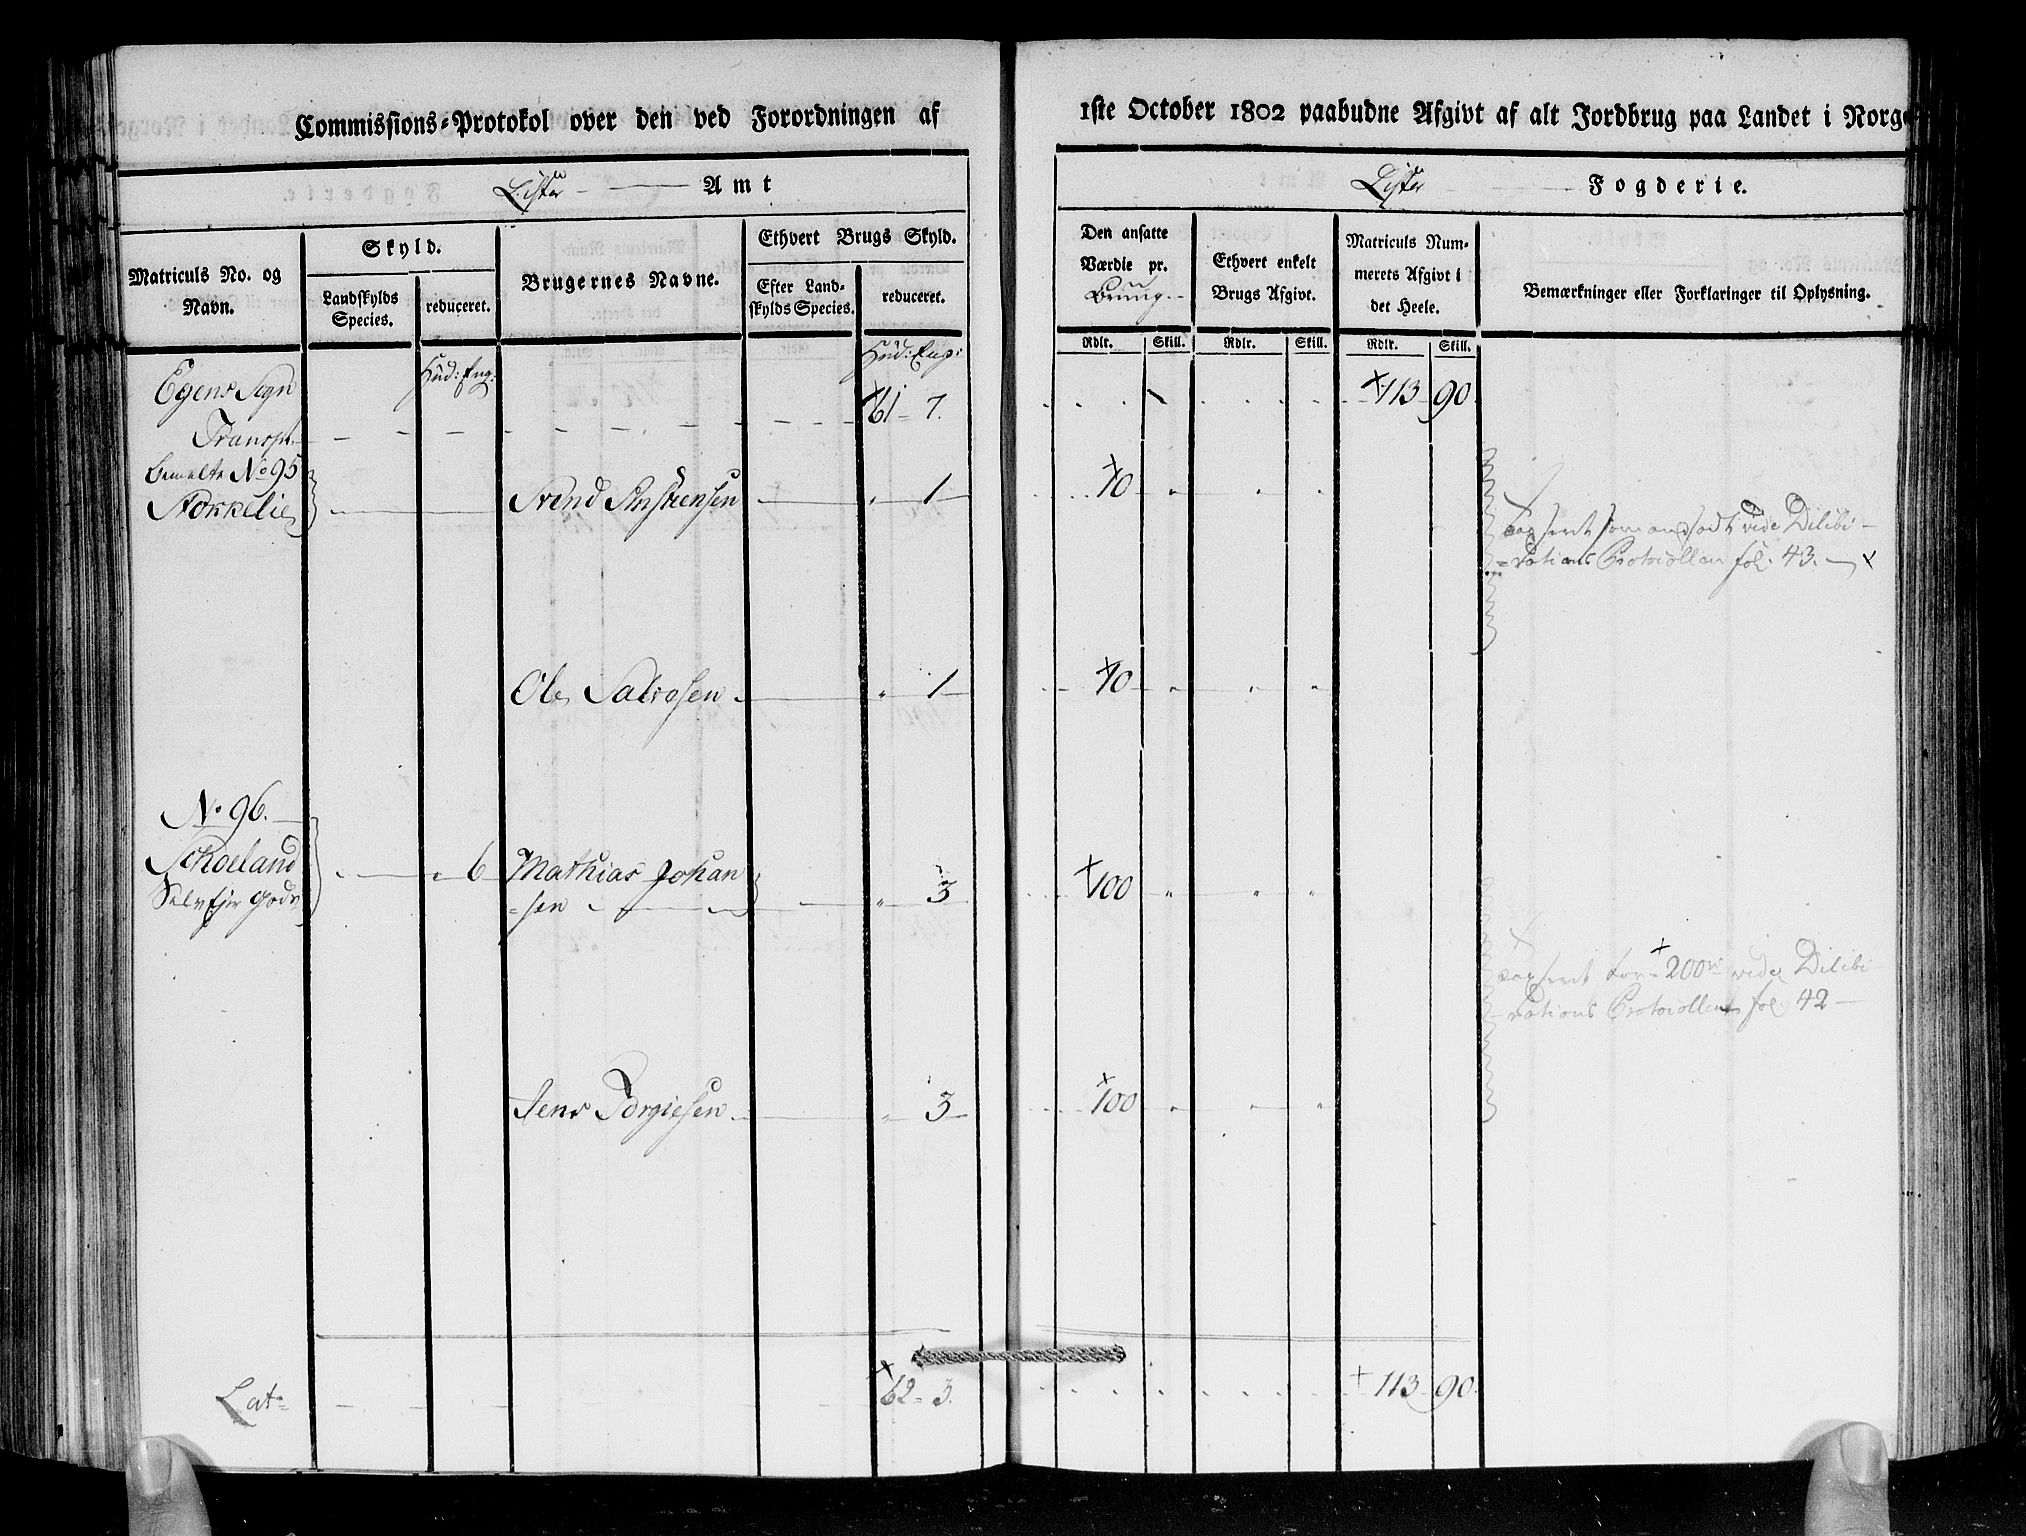 Commissions-Protokol over den ved Forordningen af 1ste October 1802 paabudne Afgivt af alt Jordbrug paa Landet i Norge
Lister Amt
Lister Fogderie.
Matriculs No. og Navn.
Skyld.
Landskylds Species.
reduceret.
Brugernes Navne.
Ethvert Brugs Skyld.
Efter Landskylds Species.
reduceret.
Den ansatte Værdie pr. Bruug.
Ethvert enkelt Brugs Afgivt.
Matriculs Nummerets Afgivt i det Heele.
Bemærkninger eller Forklaringer til Oplysning.
Rdlr. Skill. Rdlr. Skill. Rdlr. Skill.
Hud: Eng: Hud: Eng:
Egens Sogn
Transp. 61 - 7. 113 90
bemelte No 95
Stokkelie Svend 1 70
vide Dilibi-
=rations Protocollen fol. 43.
Ole Salvesen 1 70
No 96.
Schoeland 6 Mathias Johan
Selvejer Gods =sen 3 100
taxseret for 200 rd vide Dilibi
rations Protocollen fol. 42
Jens Torgiesen 3 100
Lat: 62 - 3. 113 90